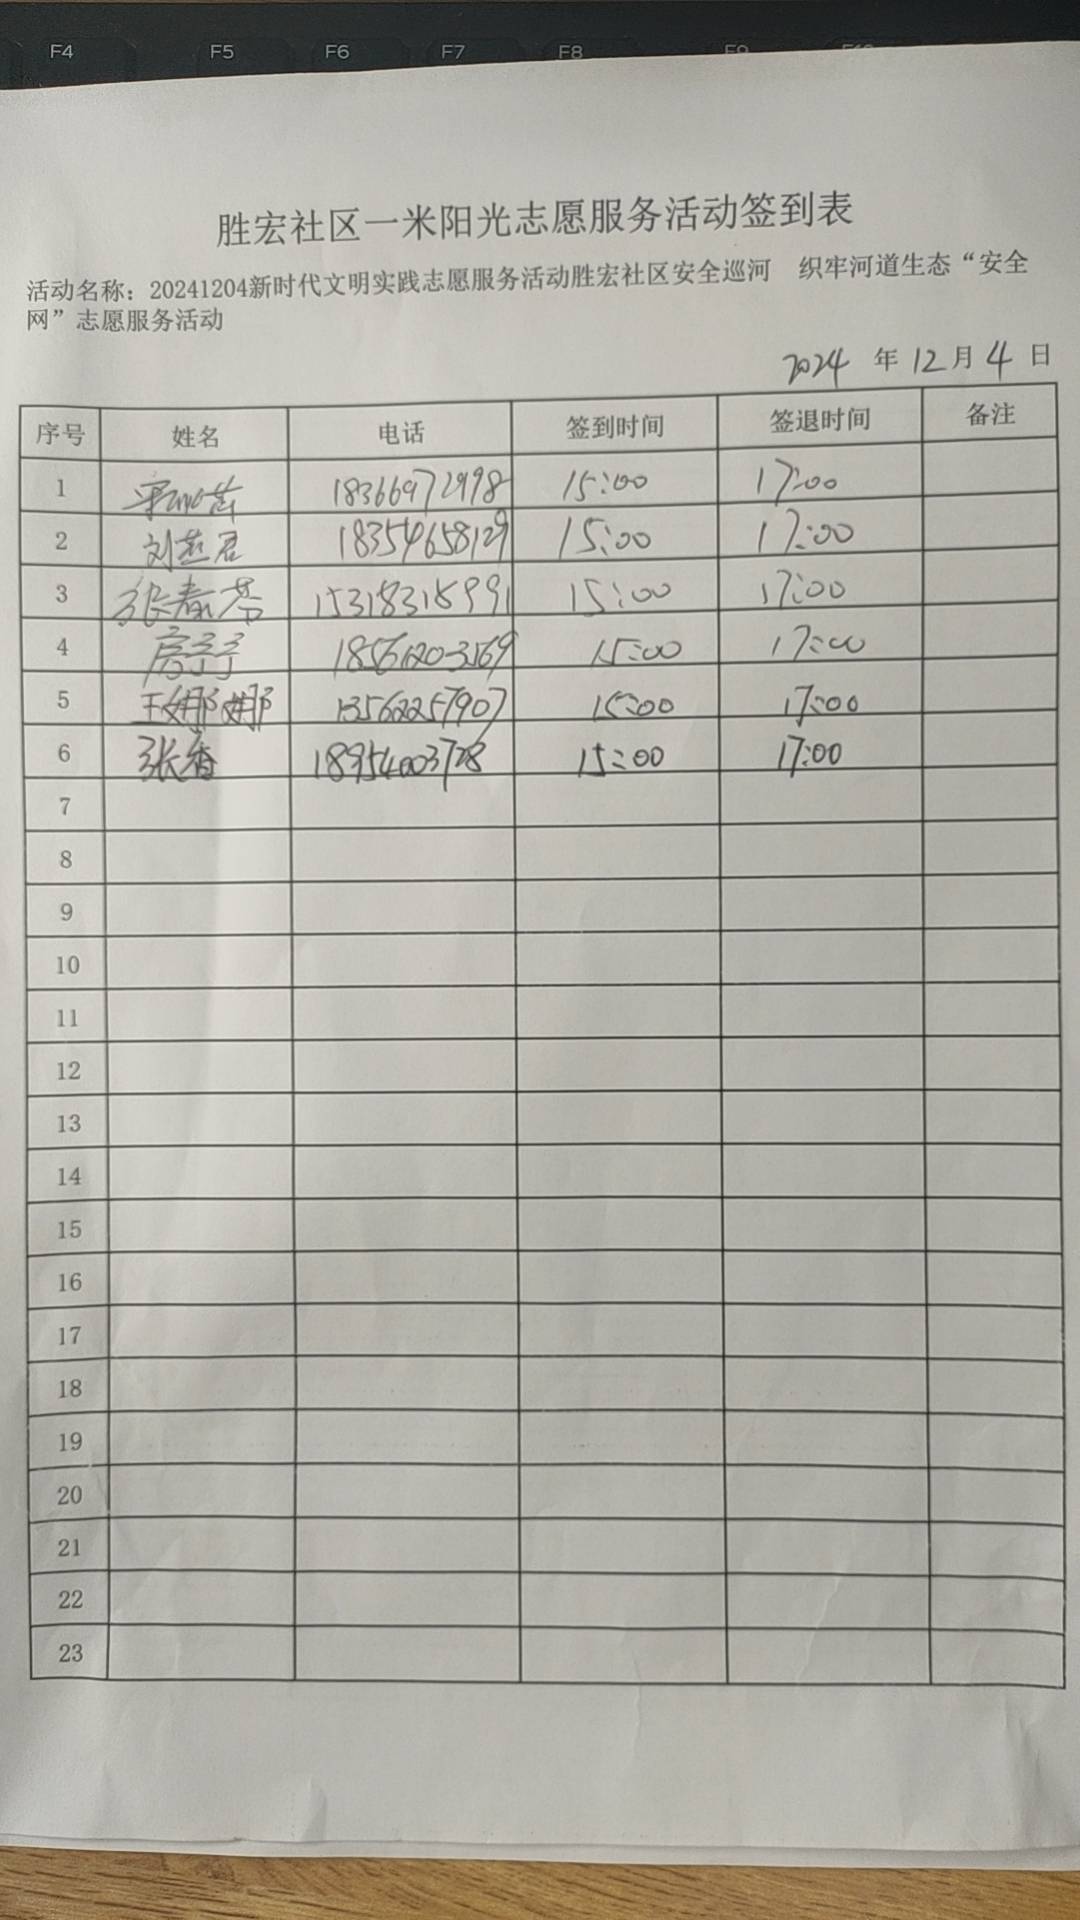 F4 F5 F6 F7 F8 F9 F10
胜宏社区一米阳光志愿服务活动签到表
活动名称：20241204新时代文明实践志愿服务活动胜宏社区安全巡河　织牢河道生态“安全
网”志愿服务活动
2024 年 12 月 4 日
序号 姓名 电话 签到时间 签退时间 备注
1 18366972998 15:00 17:00
2 刘燕君 18354658129 15:00 17:00
3 张春芳 15318318991 15:00 17:00
4 房子子 18561203569 15:00 17:00
5 王娜娜 13562257907 15:00 17:00
6 张香 18954003728 15:00 17:00
7
8
9
10
11
12
13
14
15
16
17
18
19
20
21
22
23